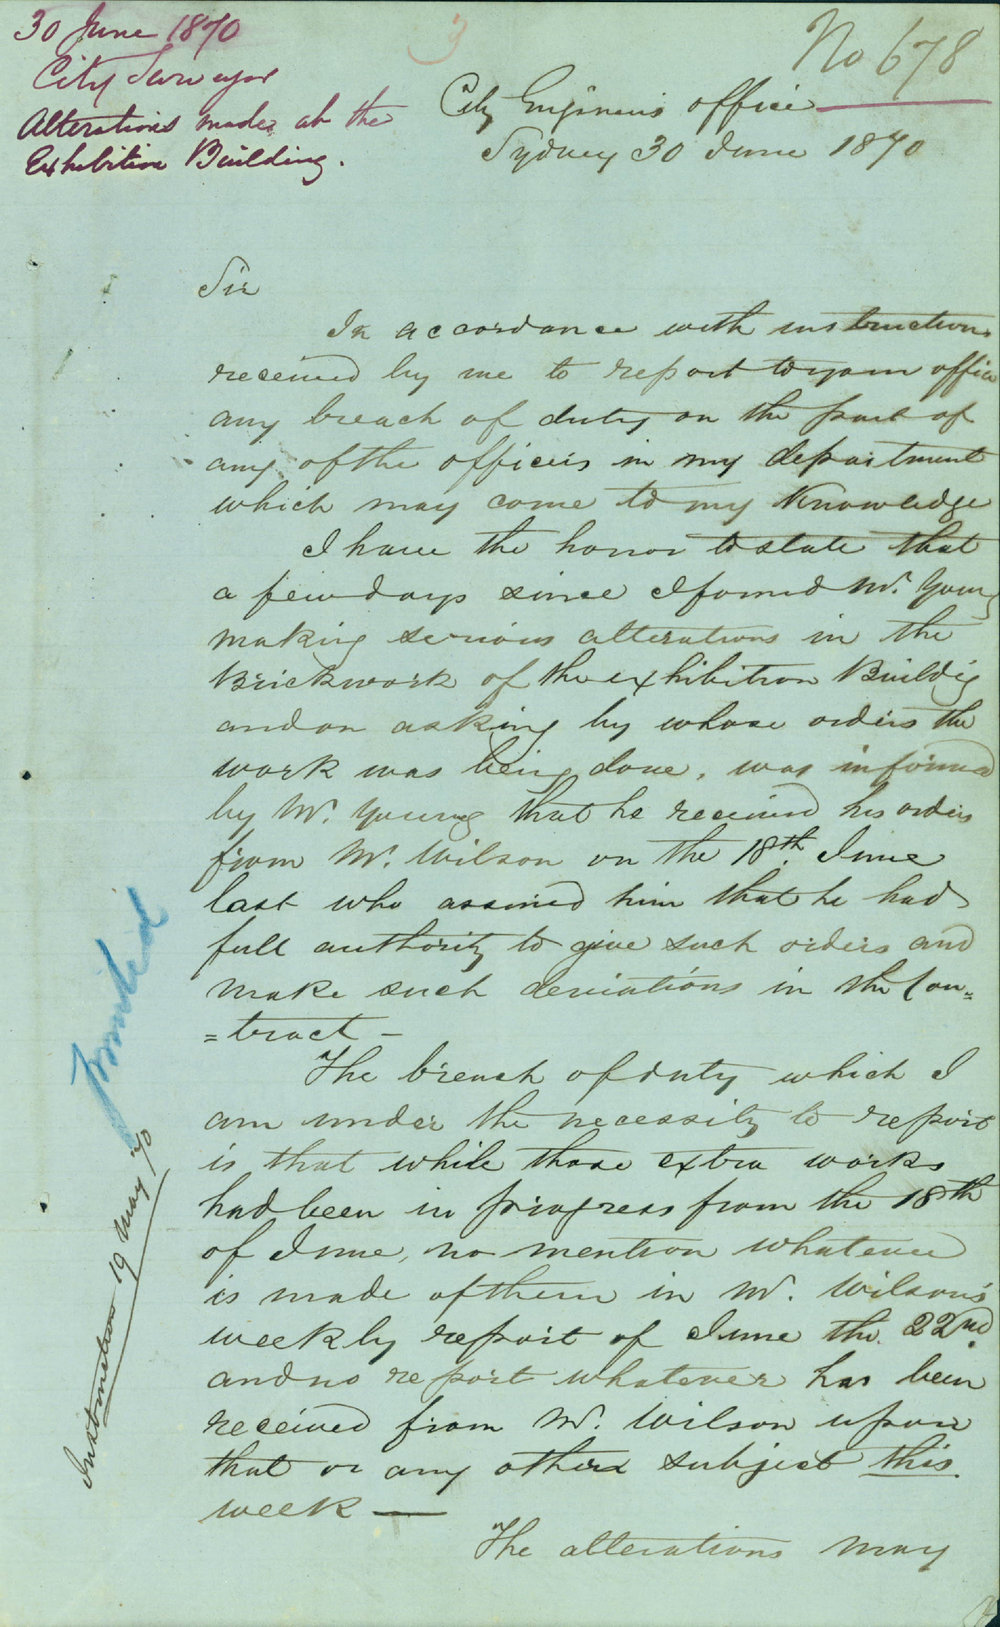 30 June 1870
City Surveyor
Alterations made at the
Exhibition Building.
3
No 678
City Engineers office
Sydney 30 June 1870
Sir
In accordance with instructions
received by me to report to your office
any breach of duty on the part of
any of the officers in my department
which may come to my Knowledge
I have the honor to state that
a few days since I found Mr. Young
making serious alterations in the
Brickwork of the exhibition Buildig
and on asking by whose orders the
work was being done, was informed
by Mr. Young that he received his orders
from Mr. Wilson on the 18th. June
last who assured him that he had
full authority to give such orders and
make such deviations in the Con=
=tract —
The breach of duty which I
am under the necessity to report
is that while those extra works
had been in progress from the 18th
of June, no mention whatever
is made of them in Mr. Wilson's
weekly report of June the. 22nd.
and no report whatever has been
received from Mr. Wilson upon
that or any other subject this.
week —
The alterations may
Instruction 19 May 70